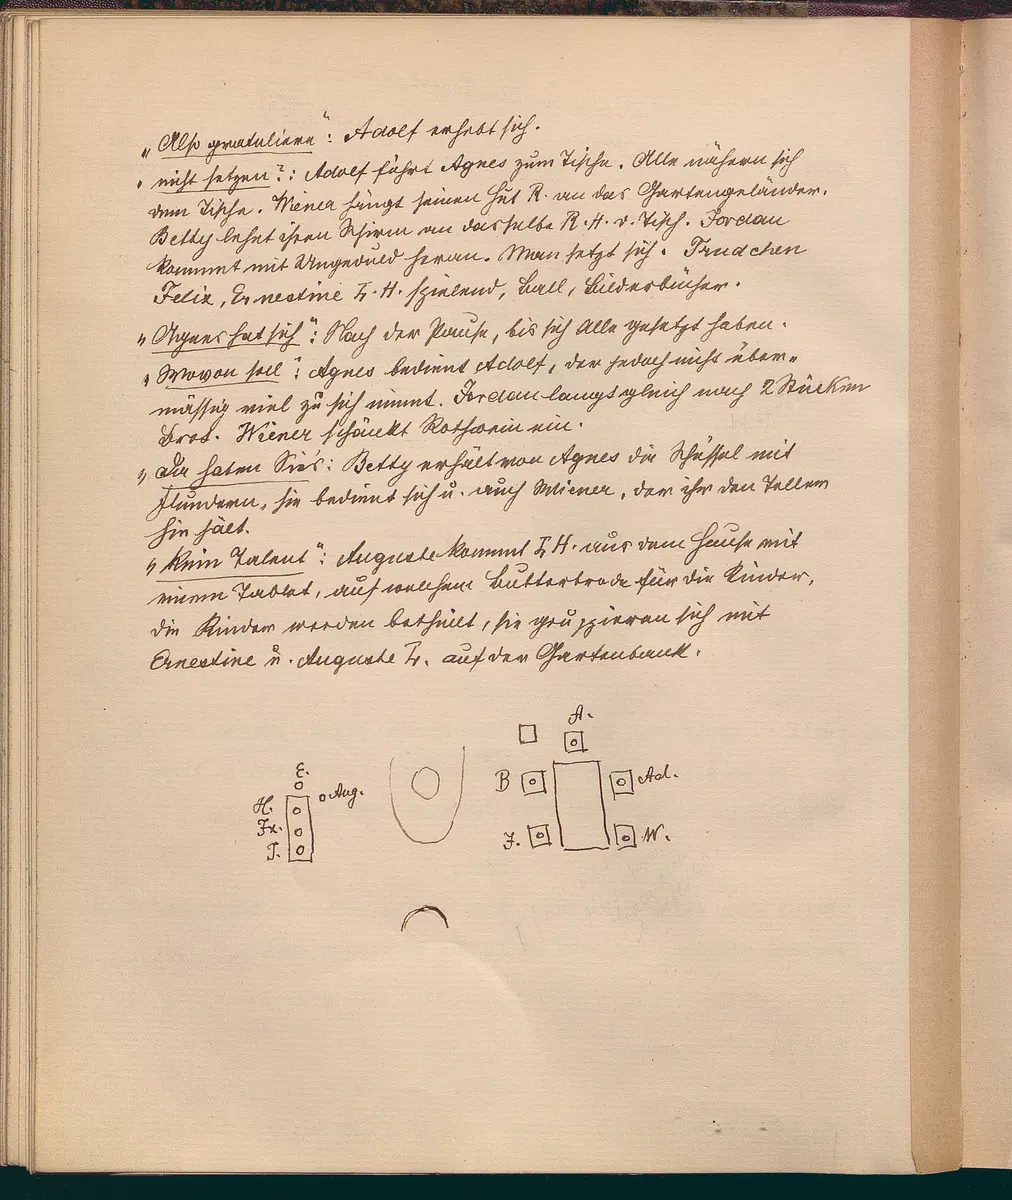 „Also gratuliere“: Adolf erhebt sich.
„nicht setzen?“: Adolf führt Agnes zum Tische. Alle nähern sich
dem Tische. Wiener hängt seinen Hut R. an das Gartengeländer.
Betty lehnt ihren Schirm an dasselbe R. H. v. Tisch. Jordan
kommt mit Ungeduld heran. Man setzt sich. Trudchen
Felix, Ernestine L. H. spielend, Ball, Bilderbücher.
„Agnes hat sich“: Nach der Pause, bis sich Alle gesetzt haben.
„Wovon soll“: Agnes bedient Adolf, der jedoch nicht über-
mässig viel zu sich nimmt. Jordan langt gleich nach 2 Stücken
Brot. Wiener schänkt Rothwein ein.
„Da haben Sie's: Betty erhält von Agnes die Schüssel mit
Flundern, sie bedient sich u. auch Wiener, der ihr den Teller
hin hält.
„Kein Talent“: Auguste kommt L H. aus dem Hause mit
einem Tablet, auf welchem Butterbrode für die Kinder,
die Kinder werden betheilt, sie gruppieren sich mit
Ernestine u. Auguste L. auf der Gartenbank.
A.
E.
B
Ad.
Aug.
H.
Fx.
J.
W.
T.